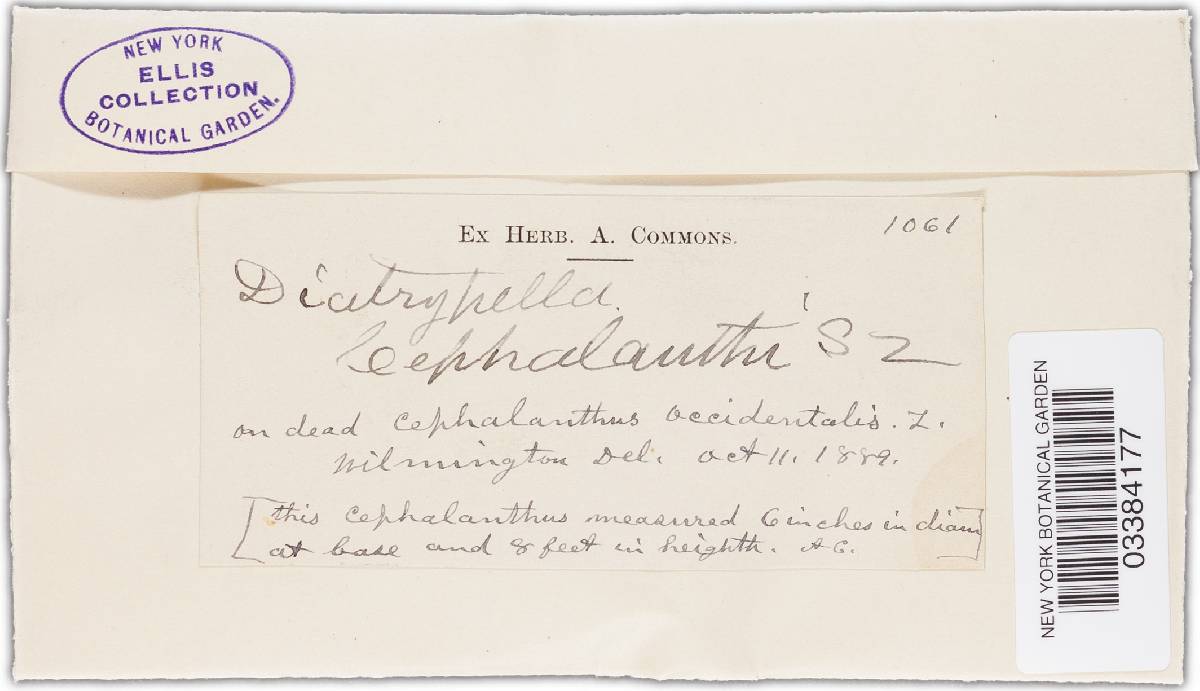 NEW YORK
ELLIS
COLLECTION
BOTANICAL GARDEN.
EX HERB. A. COMMONS.
1061
Diatrypella.
Cephalanthi Sz
on dead Cephalanthus occidentalis. L.
Wilmington Del. Oct 11. 1889.
[this Cephalanthus measured 6 inches in diam]
at base and 8 feet in heighth. A C.
NEW YORK BOTANICAL GARDEN
03384177